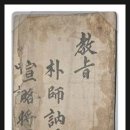 教旨
朴師訥
宣略將